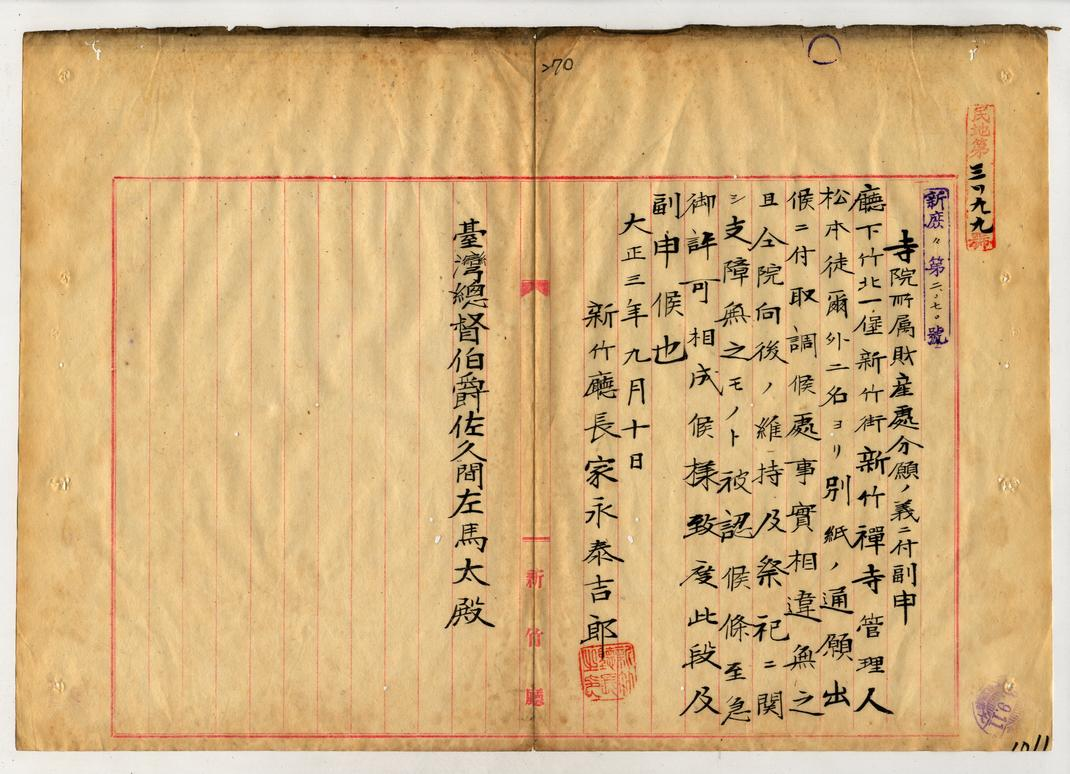 270
民地第三〇九九號
新庶第二一七〇號
寺院所属財産處分願ノ義ニ付副申
廳下竹北一堡新竹街新竹禪寺管理人
松本徒爾外二名ヨリ別紙ノ通願出
候ニ付取調候處事實相違無之
且仝院向後ノ維持及祭祀ニ関
シ支障無之モノト被認候條至急
御許可相成候様致度此段及
副申候也
大正三年九月十日
新竹廳長家永泰吉郎
新竹廳長之印
臺灣總督伯爵佐久間左馬太殿
新竹廳